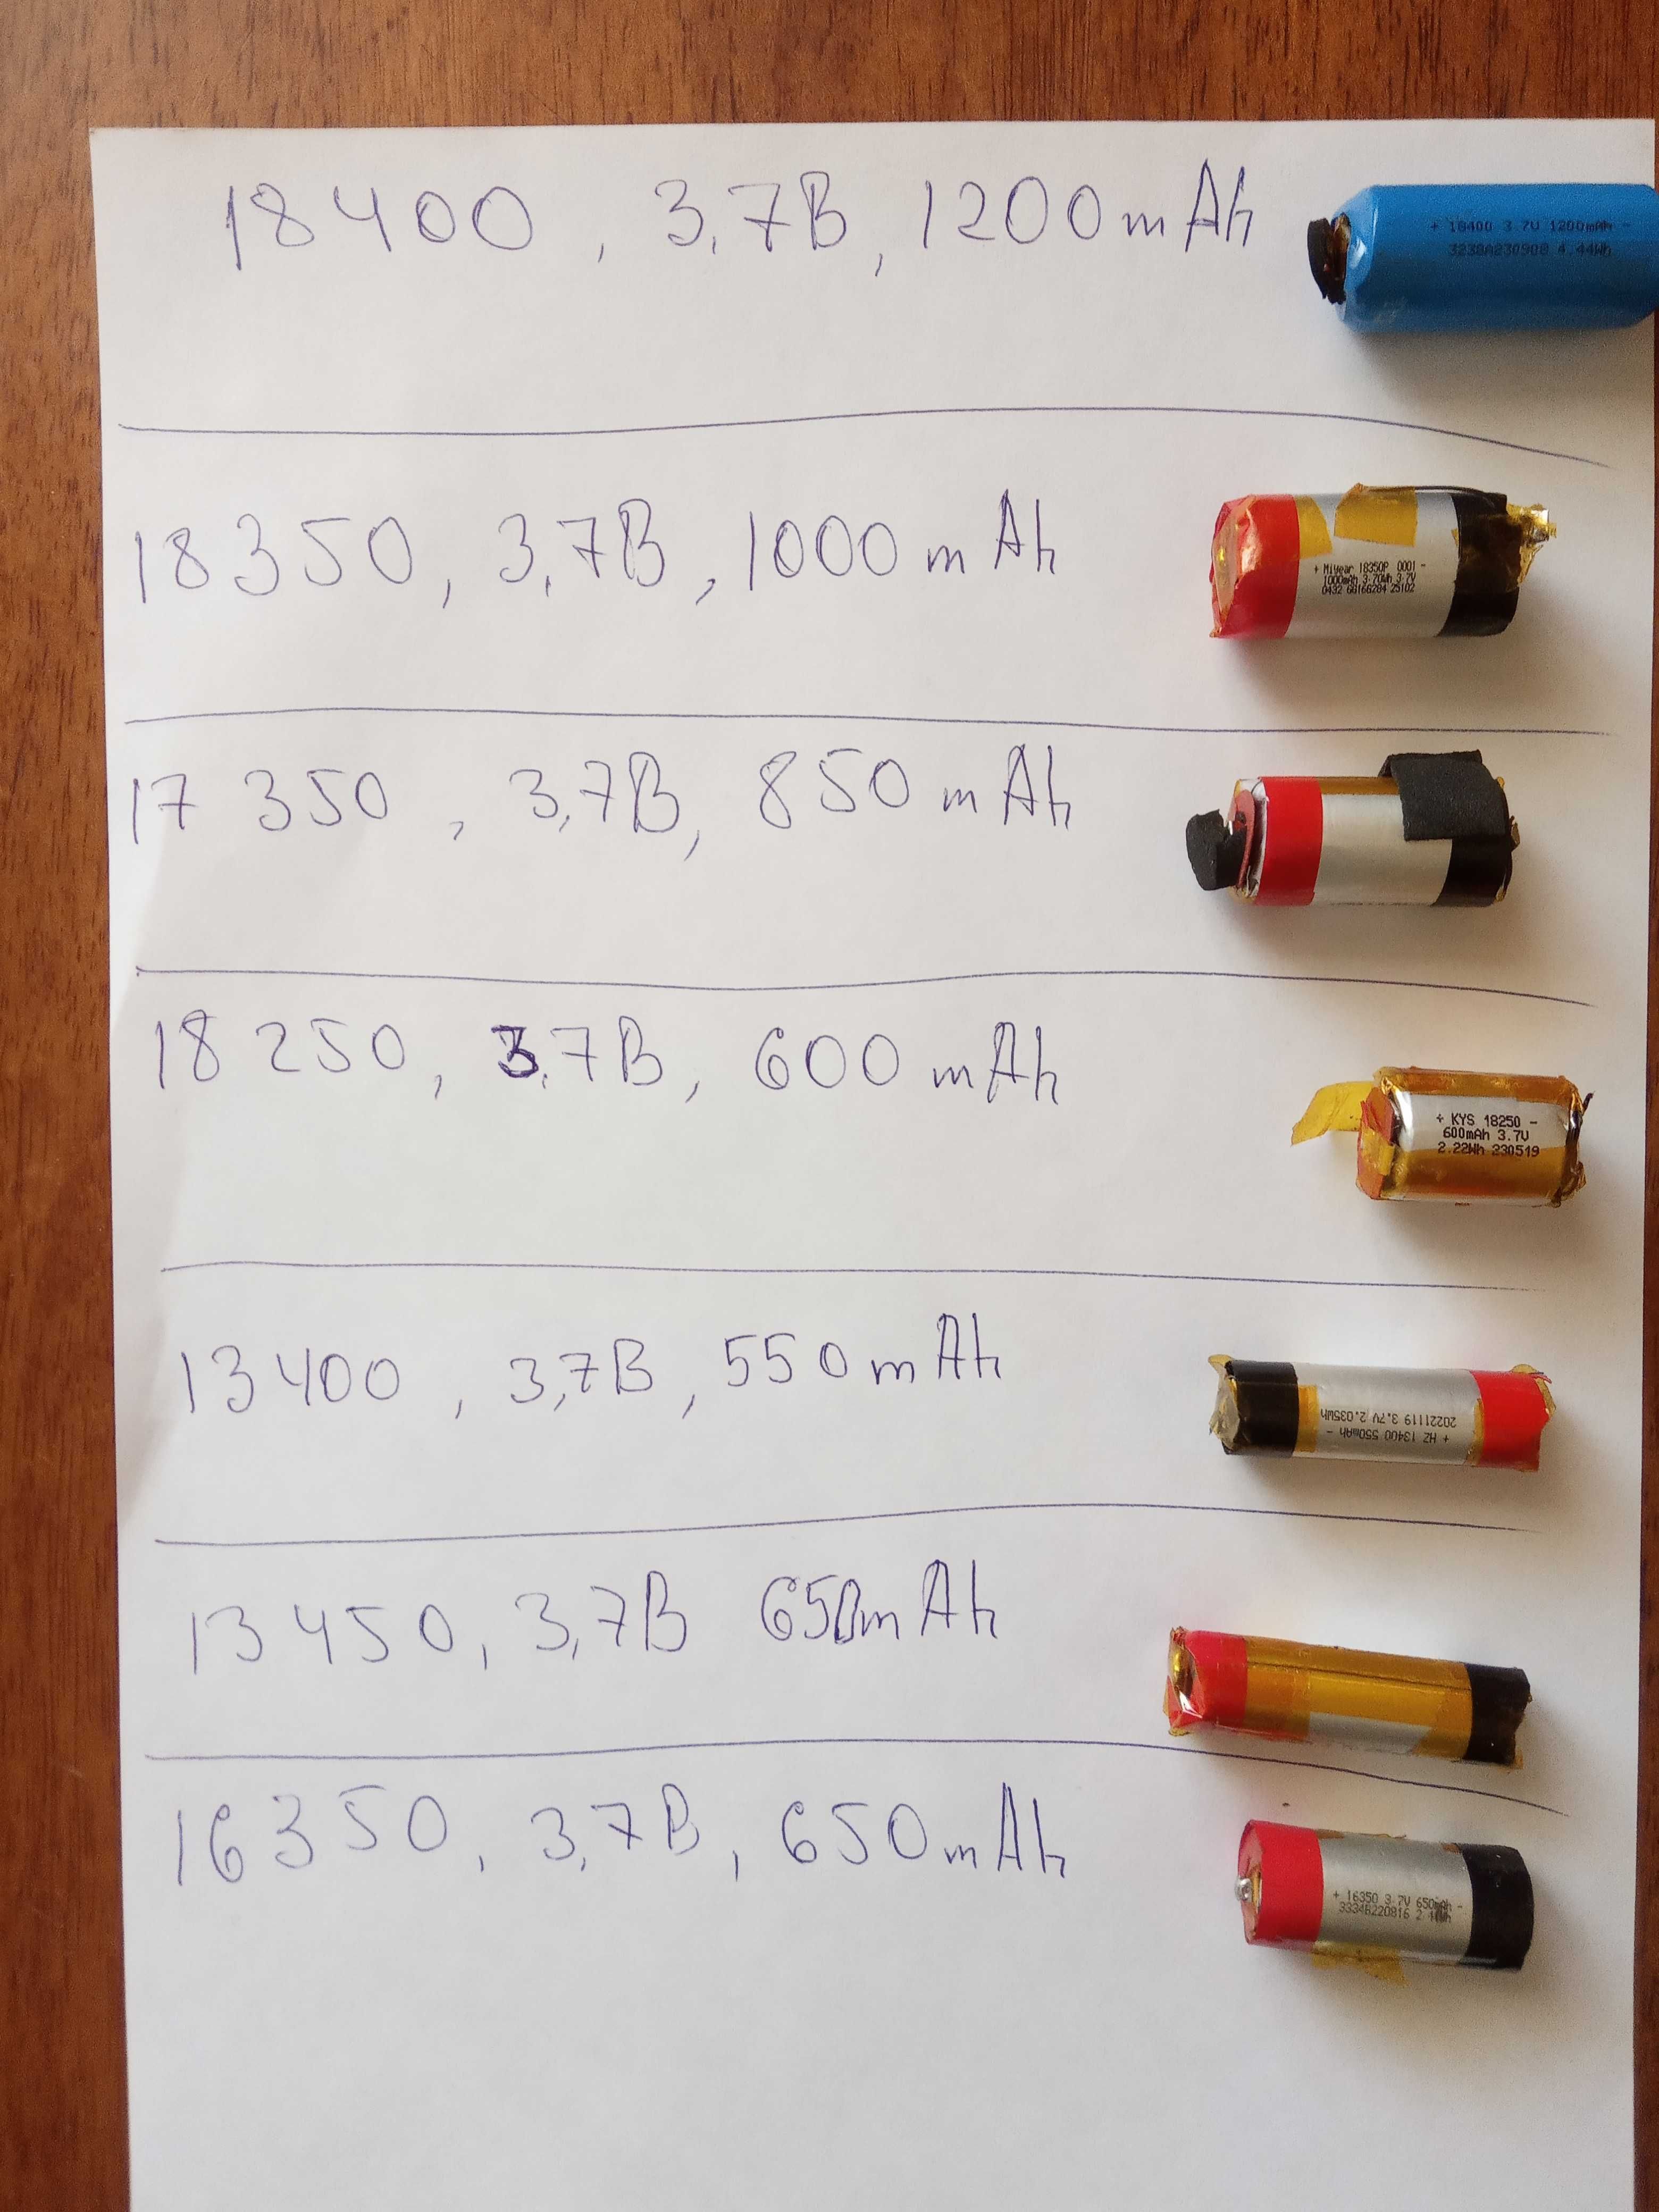 18400, 3.7В, 1200mAh
+ 18400 3.7V 1200mAh -
3238A230908 4.44Wh
18350, 3.7В, 1000mAh
+ Miyear 18350P 0001 -
1000mAh 3.70Wh 3.7V
0432 68166284 25102
17350, 3,7В, 850mAh
18250, 3.7В, 600mAh
+ KYS 18250 -
600mAh 3.7V
2.22Wh 230519
13400, 3,7В, 550mAh
+ HZ 13400 550mAh -
20221119 3.7V 2.035Wh
13450, 3,7В 650mAh
16350, 3.7В, 650mAh
+ 16350 3.7V 650mAh -
3334B220816